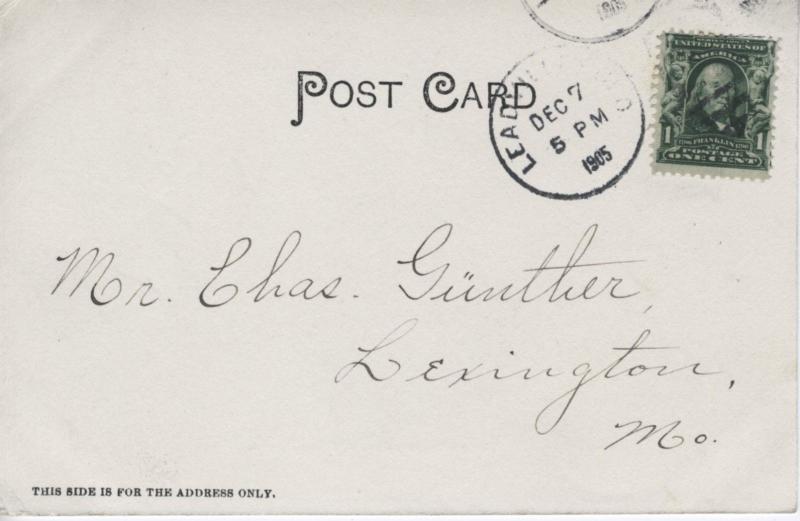 1905
POST CARD
LEAD
DEC 7
5 PM
1905
UNITED STATES OF
AMERICA
1 FRANKLIN 1
POSTAGE
ONE CENT
Mr. Chas. Günther,
Lexington,
Mo.
THIS SIDE IS FOR THE ADDRESS ONLY.